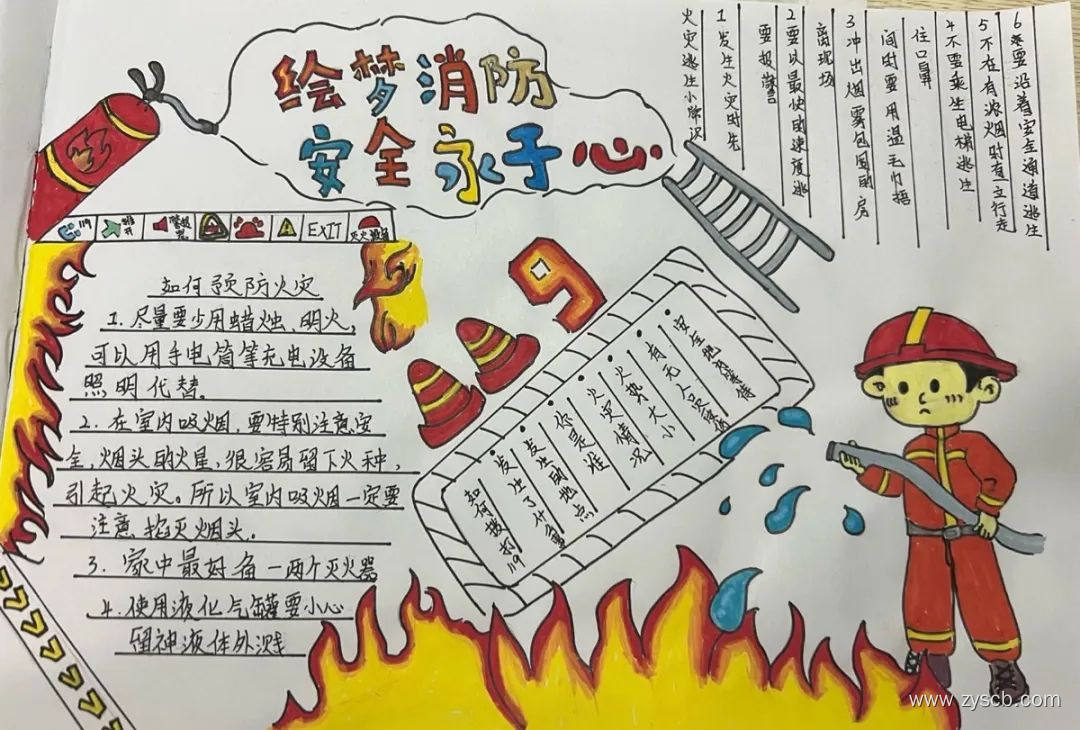 绘梦消防
安全永于心
119
EXIT
如何预防火灾
1.尽量要少用蜡烛、明火,
可以用手电筒等充电设备
照明代替。
2.在室内吸烟,要特别注意安
全,烟头的火星,很容易留下火种,
引起火灾。所以室内吸烟一定要
注意掐灭烟头.
3.家中最好备一两个灭火器
4.使用液化气罐要小心
留神液体外溅
9
如何拨打119
发生了什么事
发生的地点
你是谁
火灾情况
火势大小
有无人员
安全地
等待
火灾逃生小常识
1发生火灾时先
要报警
2要以最快的速度逃
离现场
3冲出烟雾包围的房
间时要用温毛巾捂
住口鼻
4不要乘坐电梯逃生
5不在有浓烟时直立行走
6要沿着安全通道逃生
www.zyscb.com